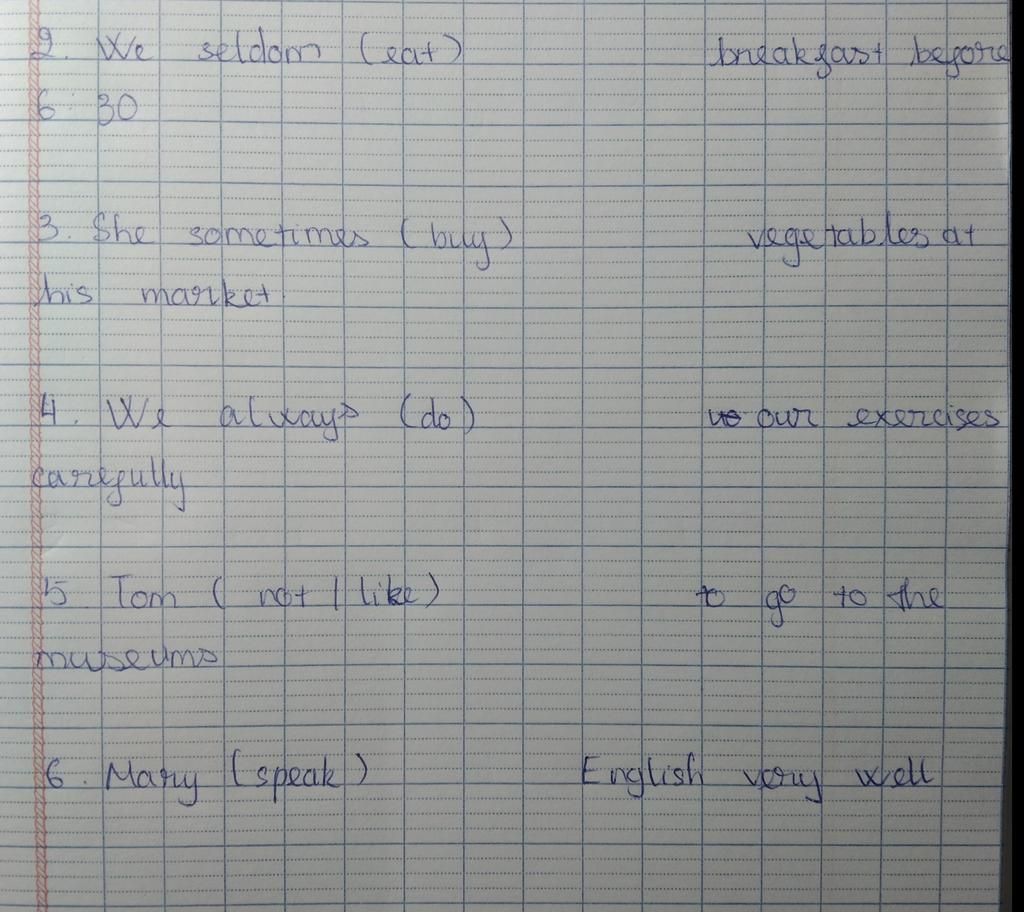 2. We seldom (eat) breakfast before
6:30
3. She sometimes (buy) vegetables at
this market
4. We always (do) our exercises
carefully
5 Tom (not / like) to go to the
museums
6. Mary (speak) English very well